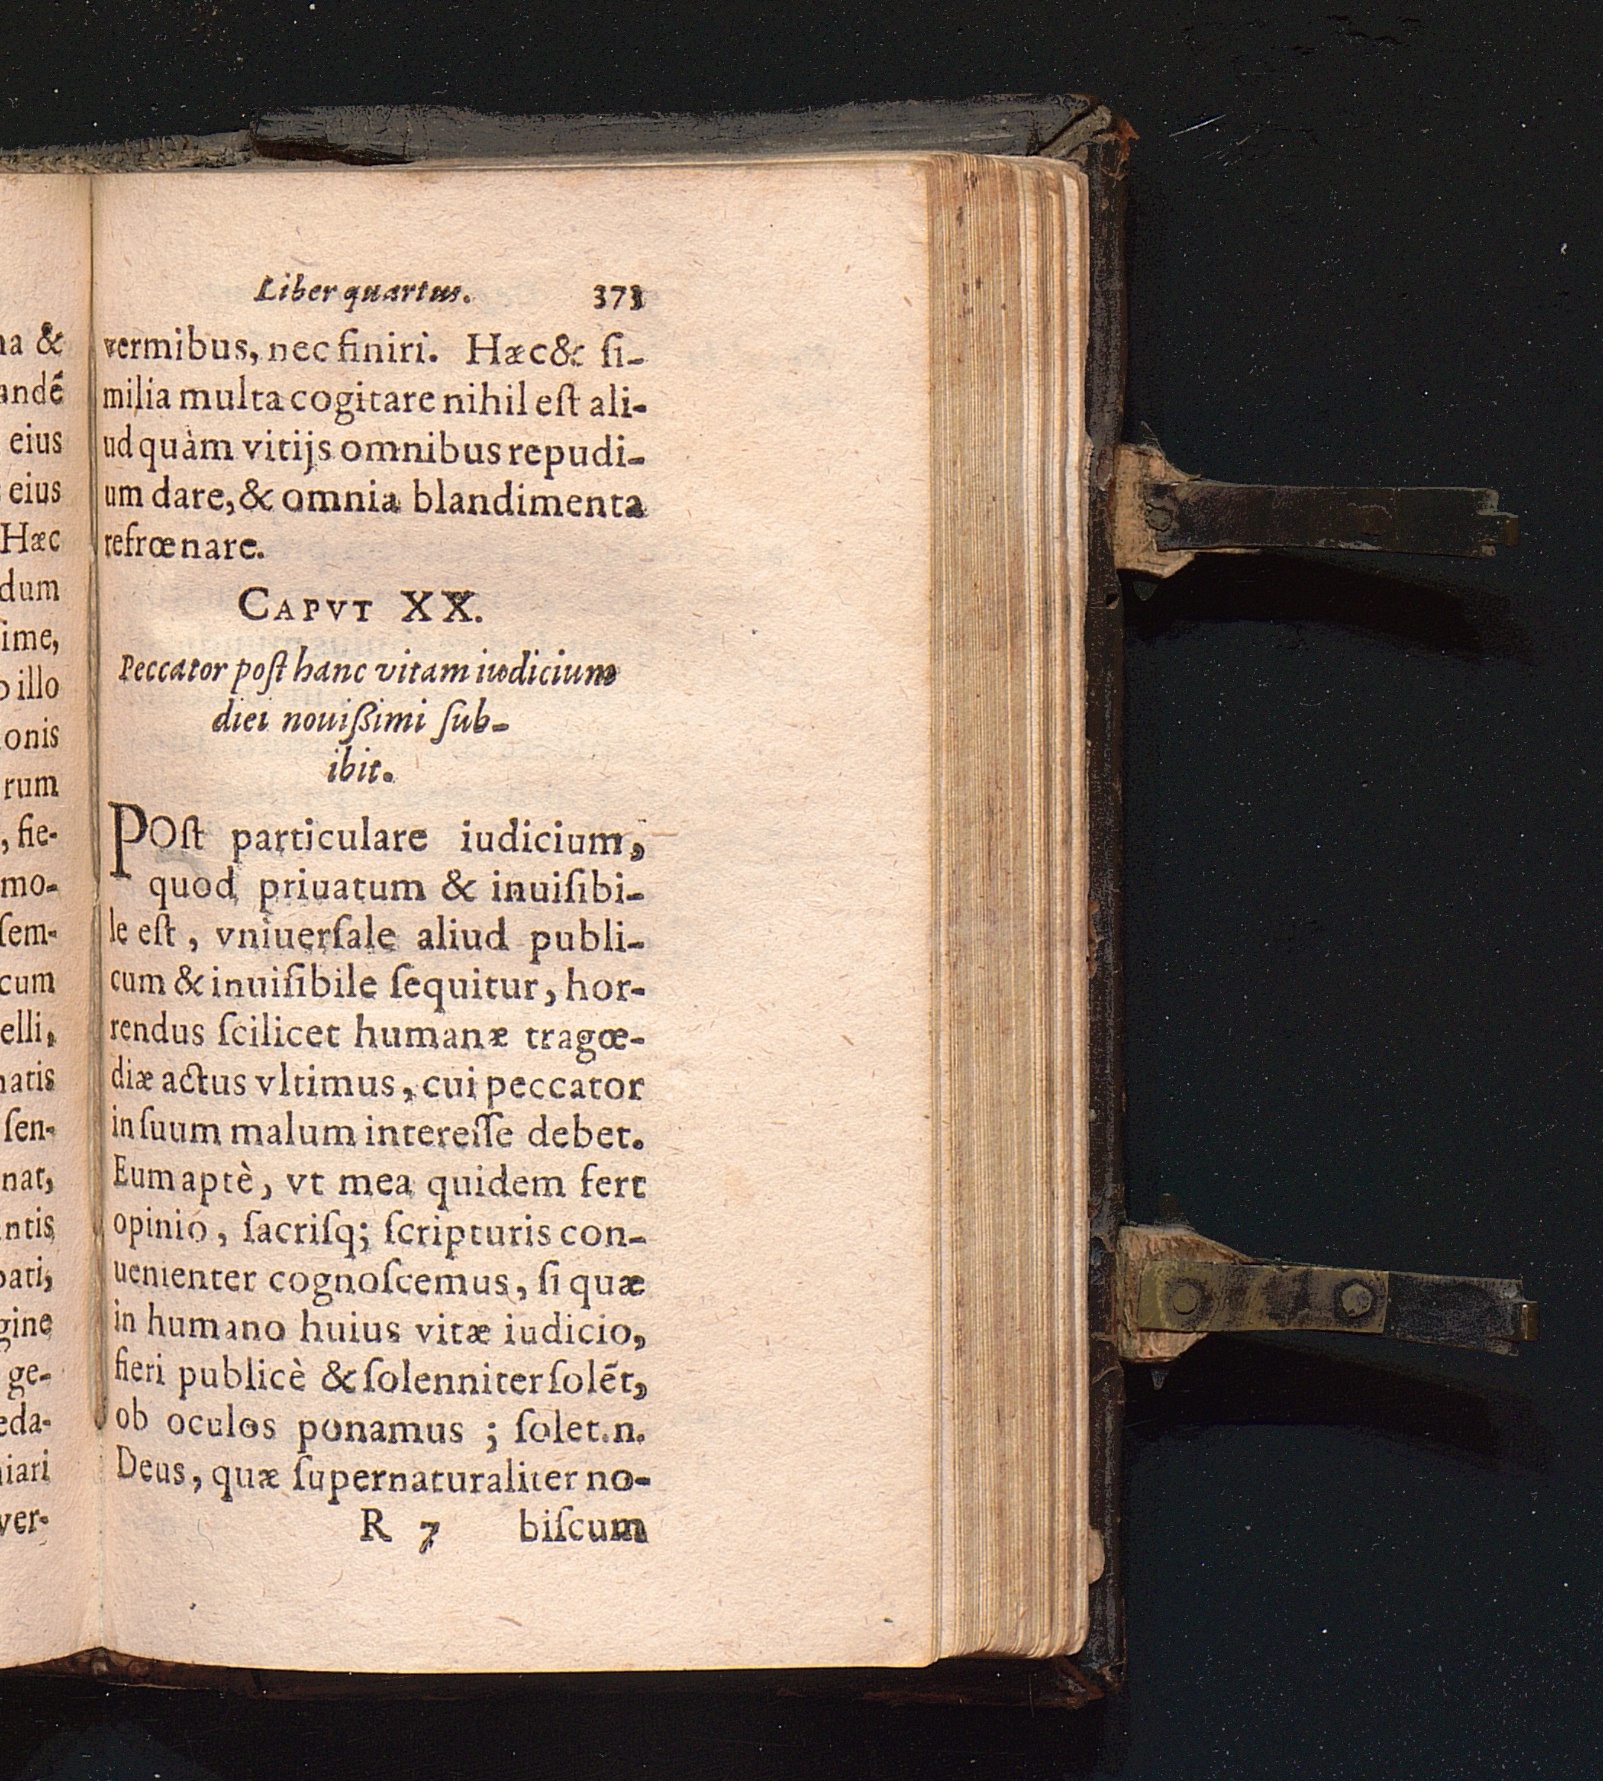 Liber quartus. 373
vermibus, nec finiri. Hæc & ſi-
milia multa cogitare nihil eſt ali-
ud quàm vitijs omnibus repudi-
um dare, & omnia blandimenta
refrœnare.
CAPVT XX.
Peccator poſt hanc vitam iudicium
diei nouißimi ſub-
ibit.
POſt particulare iudicium,
quod priuatum & inuiſibi-
le eſt, vniuerſale aliud publi-
cum & inuiſibile ſequitur, hor-
rendus ſcilicet humanæ tragœ-
diæ actus vltimus, cui peccator
in ſuum malum intereſſe debet.
Eum aptè, vt mea quidem fert
opinio, ſacriſq; ſcripturis con-
uenienter cognoſcemus, ſi quæ
in humano huius vitæ iudicio,
fieri publicè & ſolenniter ſolẽt,
ob oculos ponamus; ſolet.n.
Deus, quæ ſupernaturaliter no-
R 7 biſcum
na &
andẽ
eius
eius
Hæc
dum
ime,
o illo
onis
rum
, fie-
mo-
ſem-
cum
elli,
natis
ſen-
nat,
ntis
pati,
gine
ge-
eda-
niari
ver-